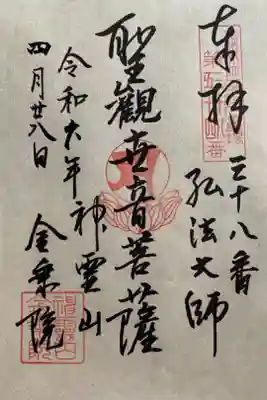 奉拝
三十八番
弘法大師
聖觀世音菩薩
令和六年
神霊山
四月廿八日
金乗院